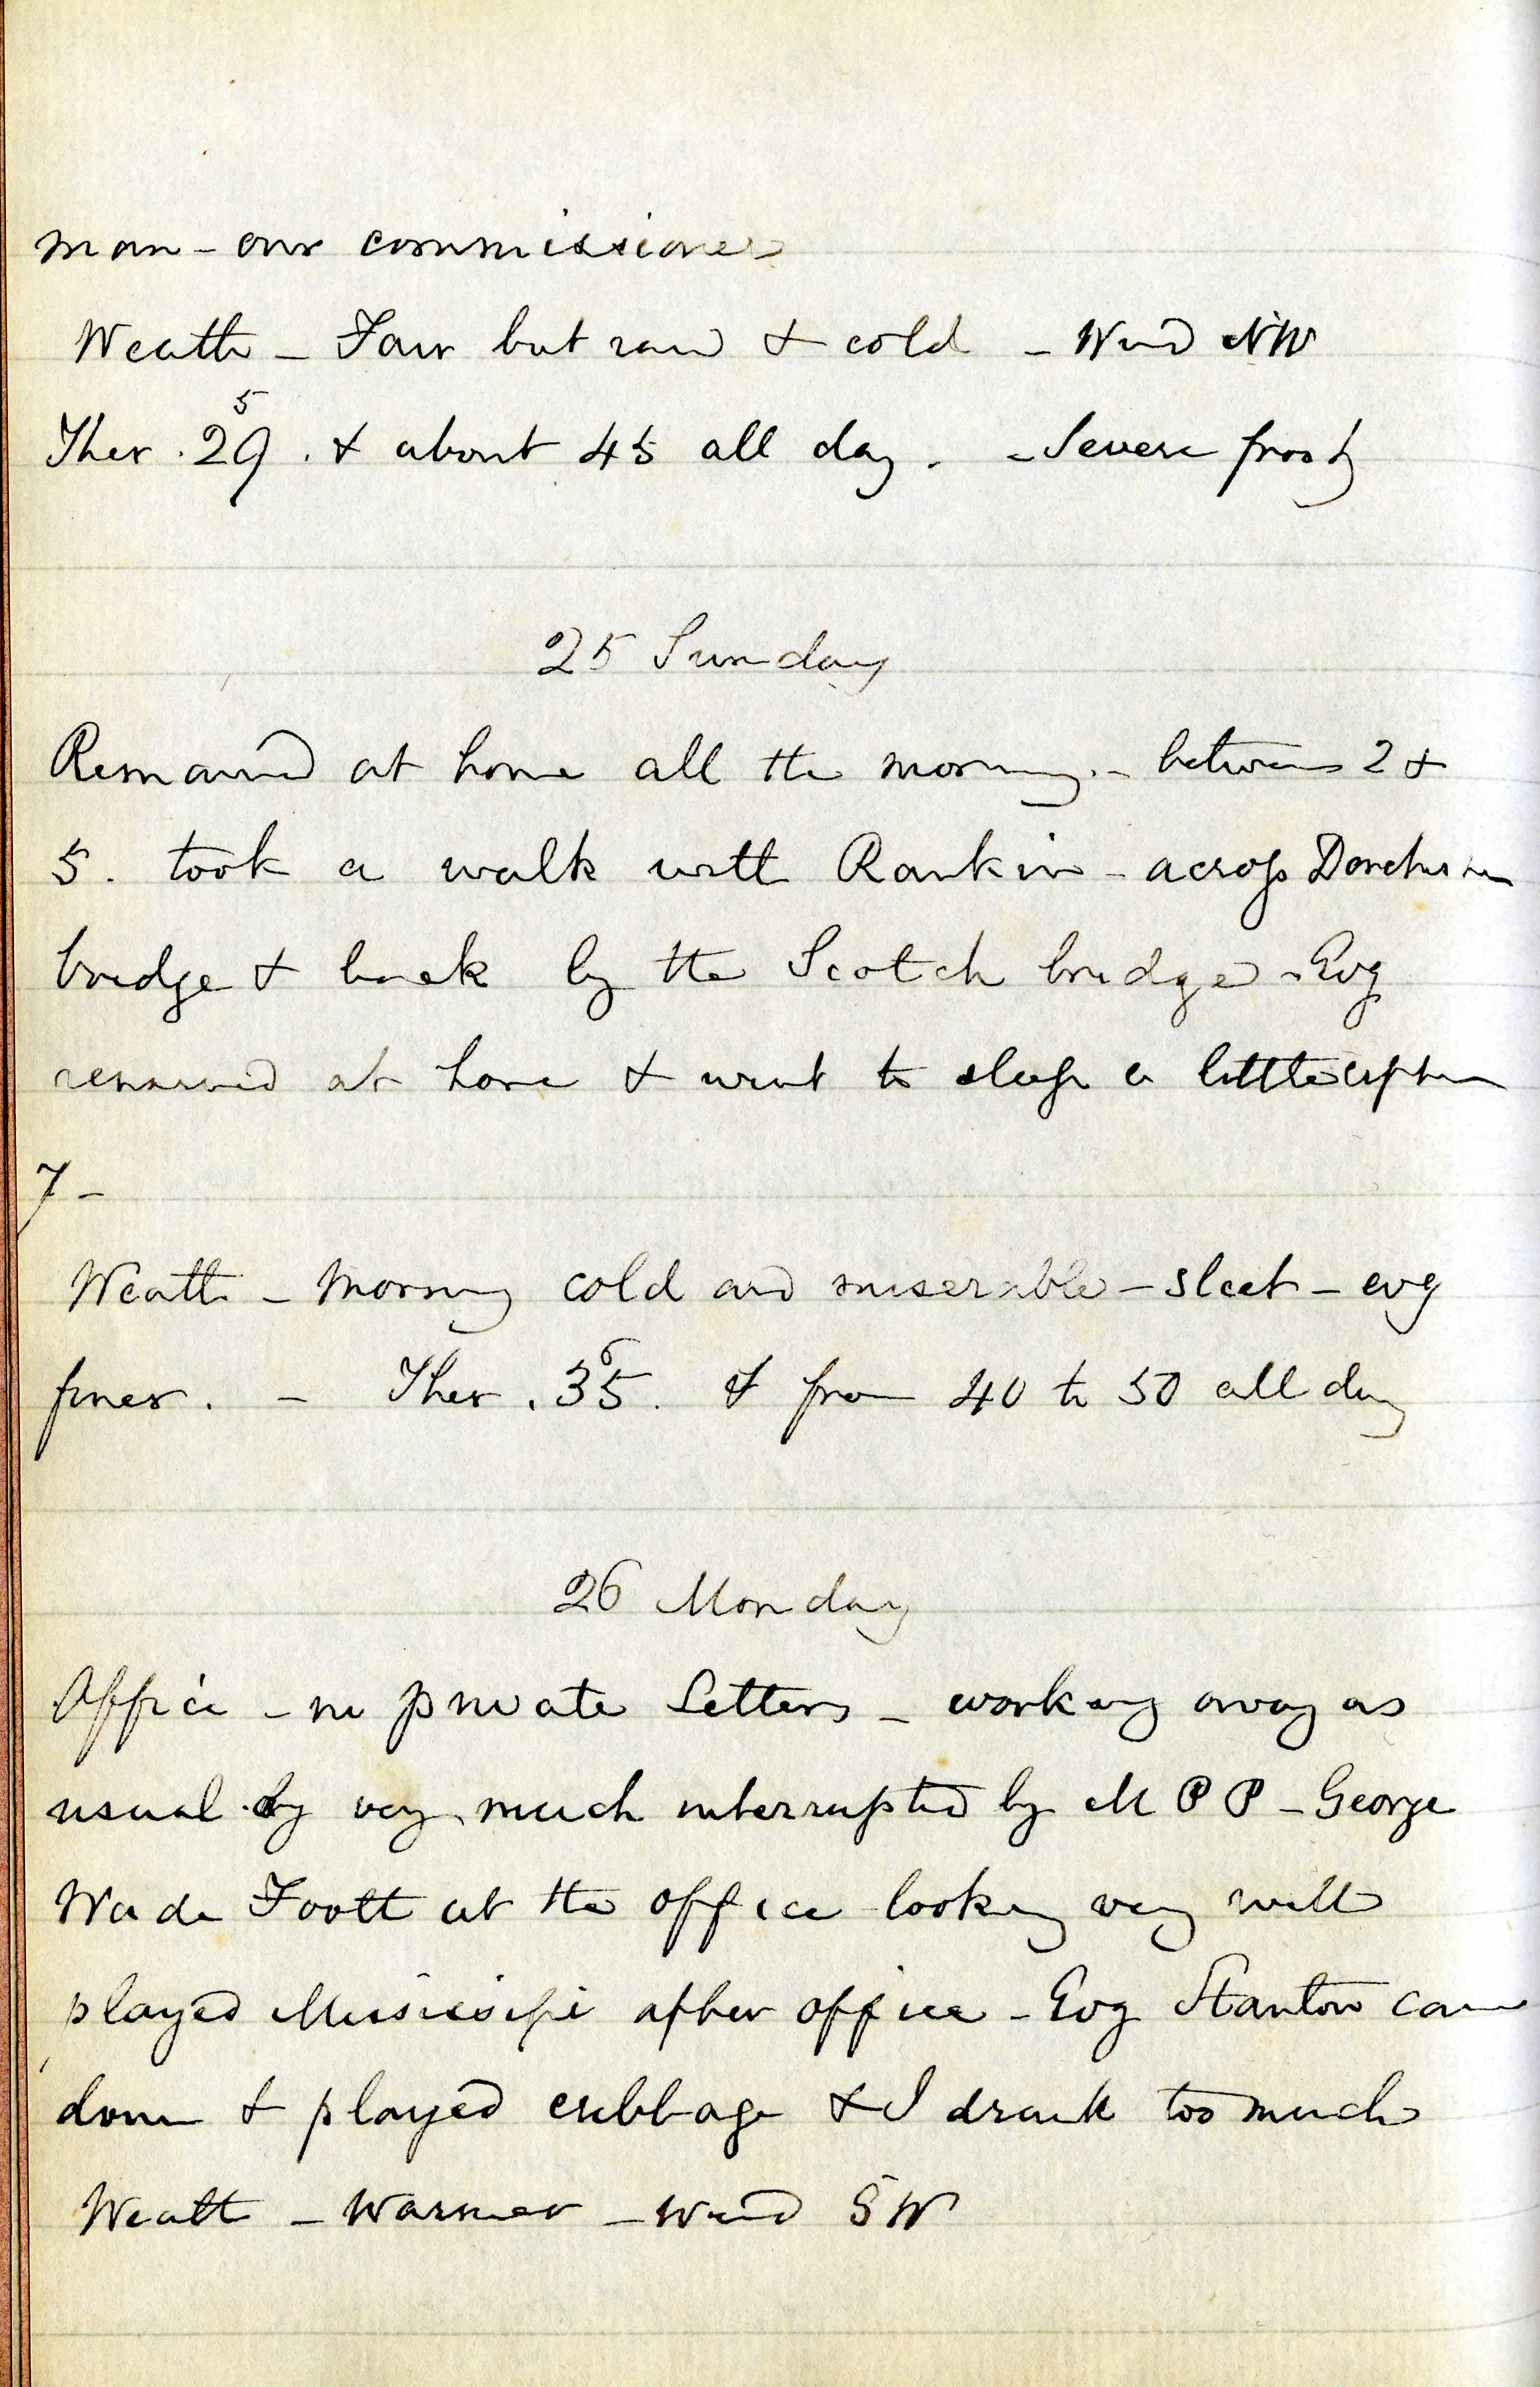 man - our commissioner
Weath - Fair but raw & cold - Wind NW
Ther. 29 5 . & about 45 all day. - Severe frost
25 Sunday
Remained at home all the morning. - between 2 &
5. took a walk with Rankin - across Dorchester
bridge & back by the Scotch bridge - Evg
remained at home & went to sleep a little after
7 -
Weath - Morning cold and miserable - sleet - evg
finer. - Ther. 35 6 . & from 40 to 50 all day
26 Monday
Office - no private letters - working away as
usual very much interrupted by M P P - George
Wade Foott at the office looking very well
played Missisipi after office - Evg Stanton came
down & played cribbage & I drank too much
Weath - Warmer - Wind SW